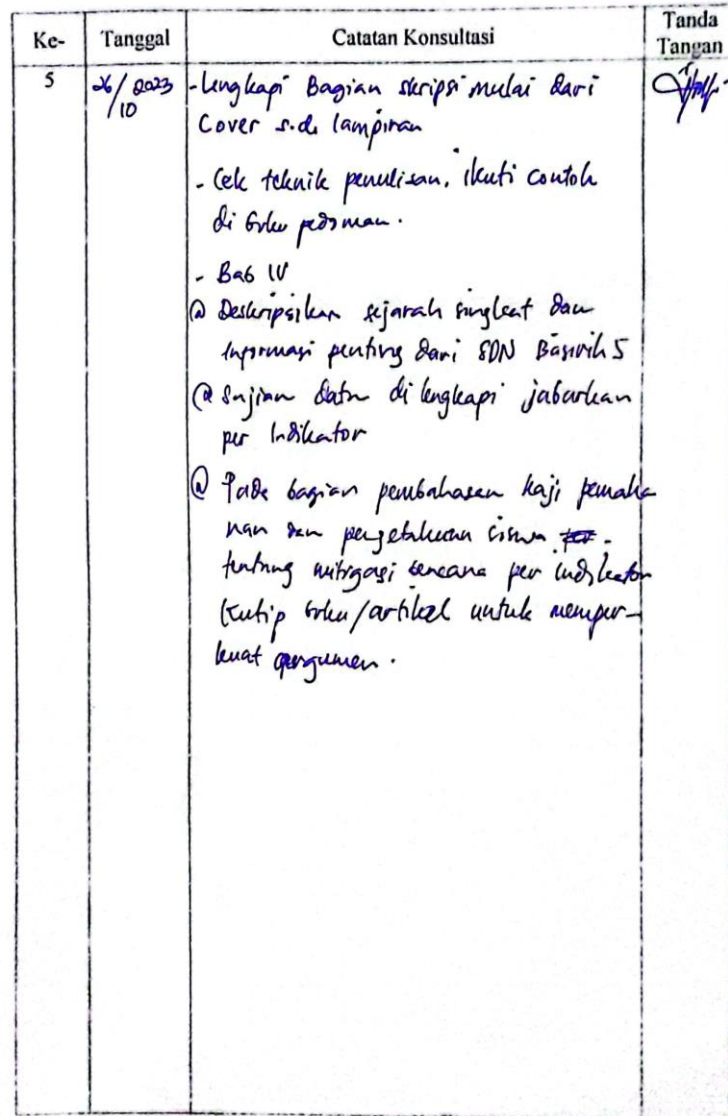 Ke- Tanggal Catatan Konsultasi Tanda Tangan
5 26/10 2023 - lengkapi Bagian skripsi mulai dari
Cover s.d. lampiran
- Cek teknik penulisan, ikuti contoh
di buku pedoman.
- Bab IV
@ Deskripsikan sejarah singkat dan
informasi penting dari SDN Basirih 5
@ Sajian data di lengkapi jabarkan
per Indikator
@ Pada bagian pembahasan kaji pemaha
man dan pengetahuan siswa
tentang mitigasi bencana per indikator
kutip buku/artikel untuk memper-
kuat argumen.